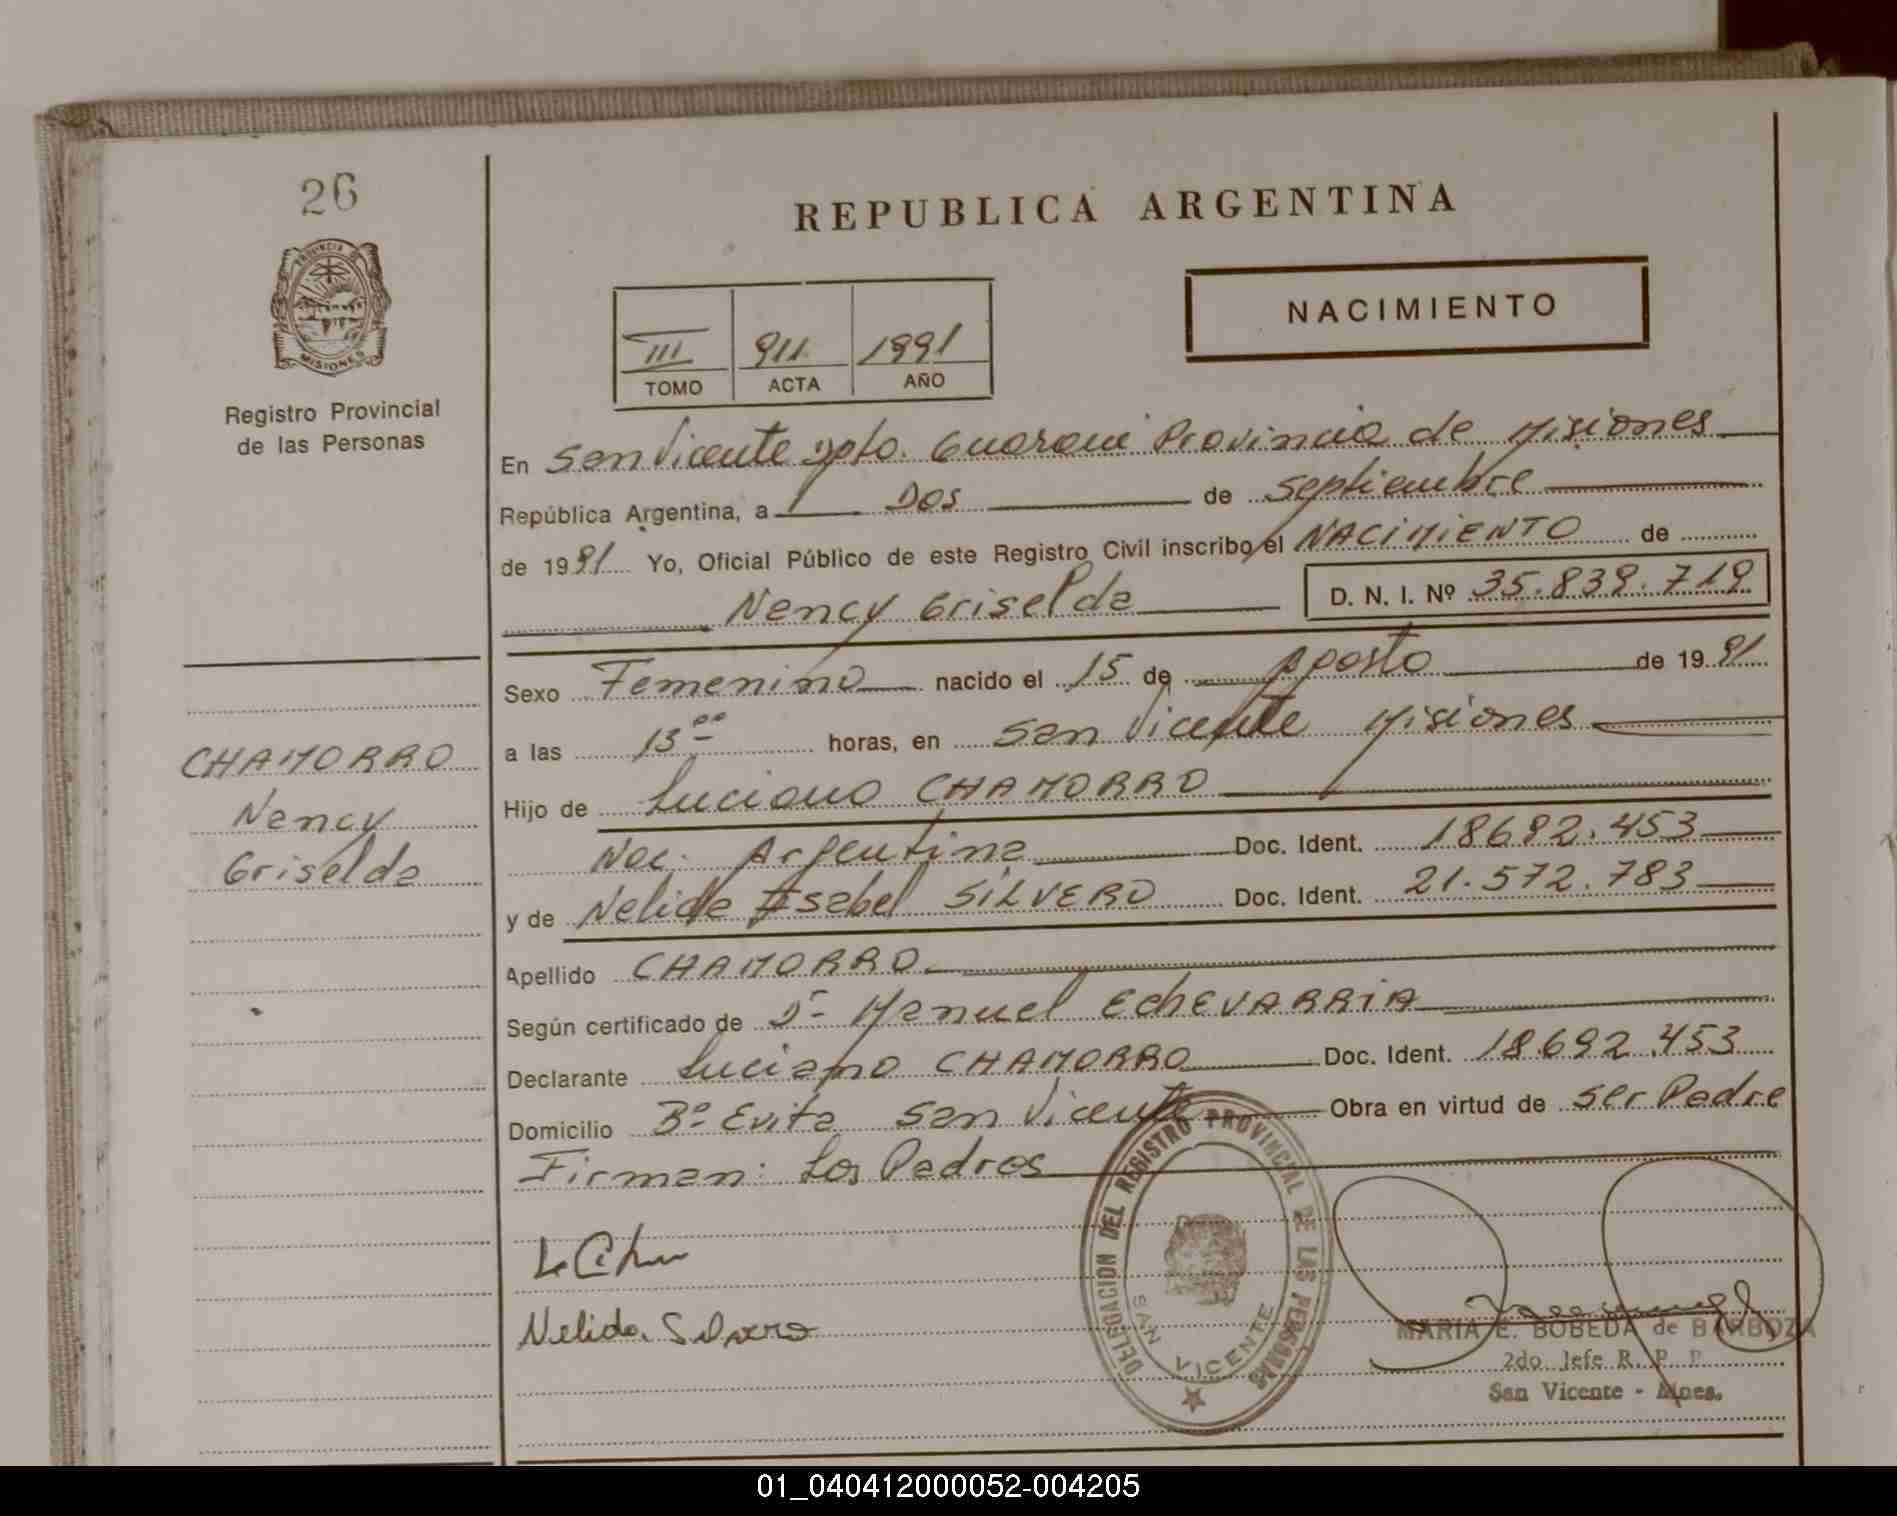 26
PROVINCIA DE
MISIONES
Registro Provincial
de las Personas
CHAMORRO
Nancy
Griselda
REPUBLICA ARGENTINA
NACIMIENTO
III 911 1991
TOMO ACTA AÑO
En San Vicente Dpto. Guarani Provincia de Misiones
República Argentina, a Dos de Septiembre
de 1991 Yo, Oficial Público de este Registro Civil inscribo el NACIMIENTO de
Nancy Griselda D. N. I. Nº 35.839.719
Sexo Femenino nacido el 15 de Agosto de 1991
a las 13 ºº horas, en San Vicente Misiones
Hijo de Luciano CHAMORRO
Nac. Argentina Doc. Ident. 18692.453
y de Nelida Isabel SILVERO Doc. Ident. 21.572.783
Apellido CHAMORRO
Según certificado de Dr Manuel EchEVARRIA
Declarante Luciano CHAMORRO Doc. Ident. 18.692.453
Domicilio Bº Evita San Vicente Obra en virtud de ser Padre
Firman: Los Padres
Nelida Silvero
DELEGACION DEL REGISTRO PROVINCIAL DE LAS PERSONAS
SAN VICENTE
MARIA E. BOBEDA de BARBOZA
2do. Jefe R. P. P.
San Vicente - Mnes.
01_040412000052-004205